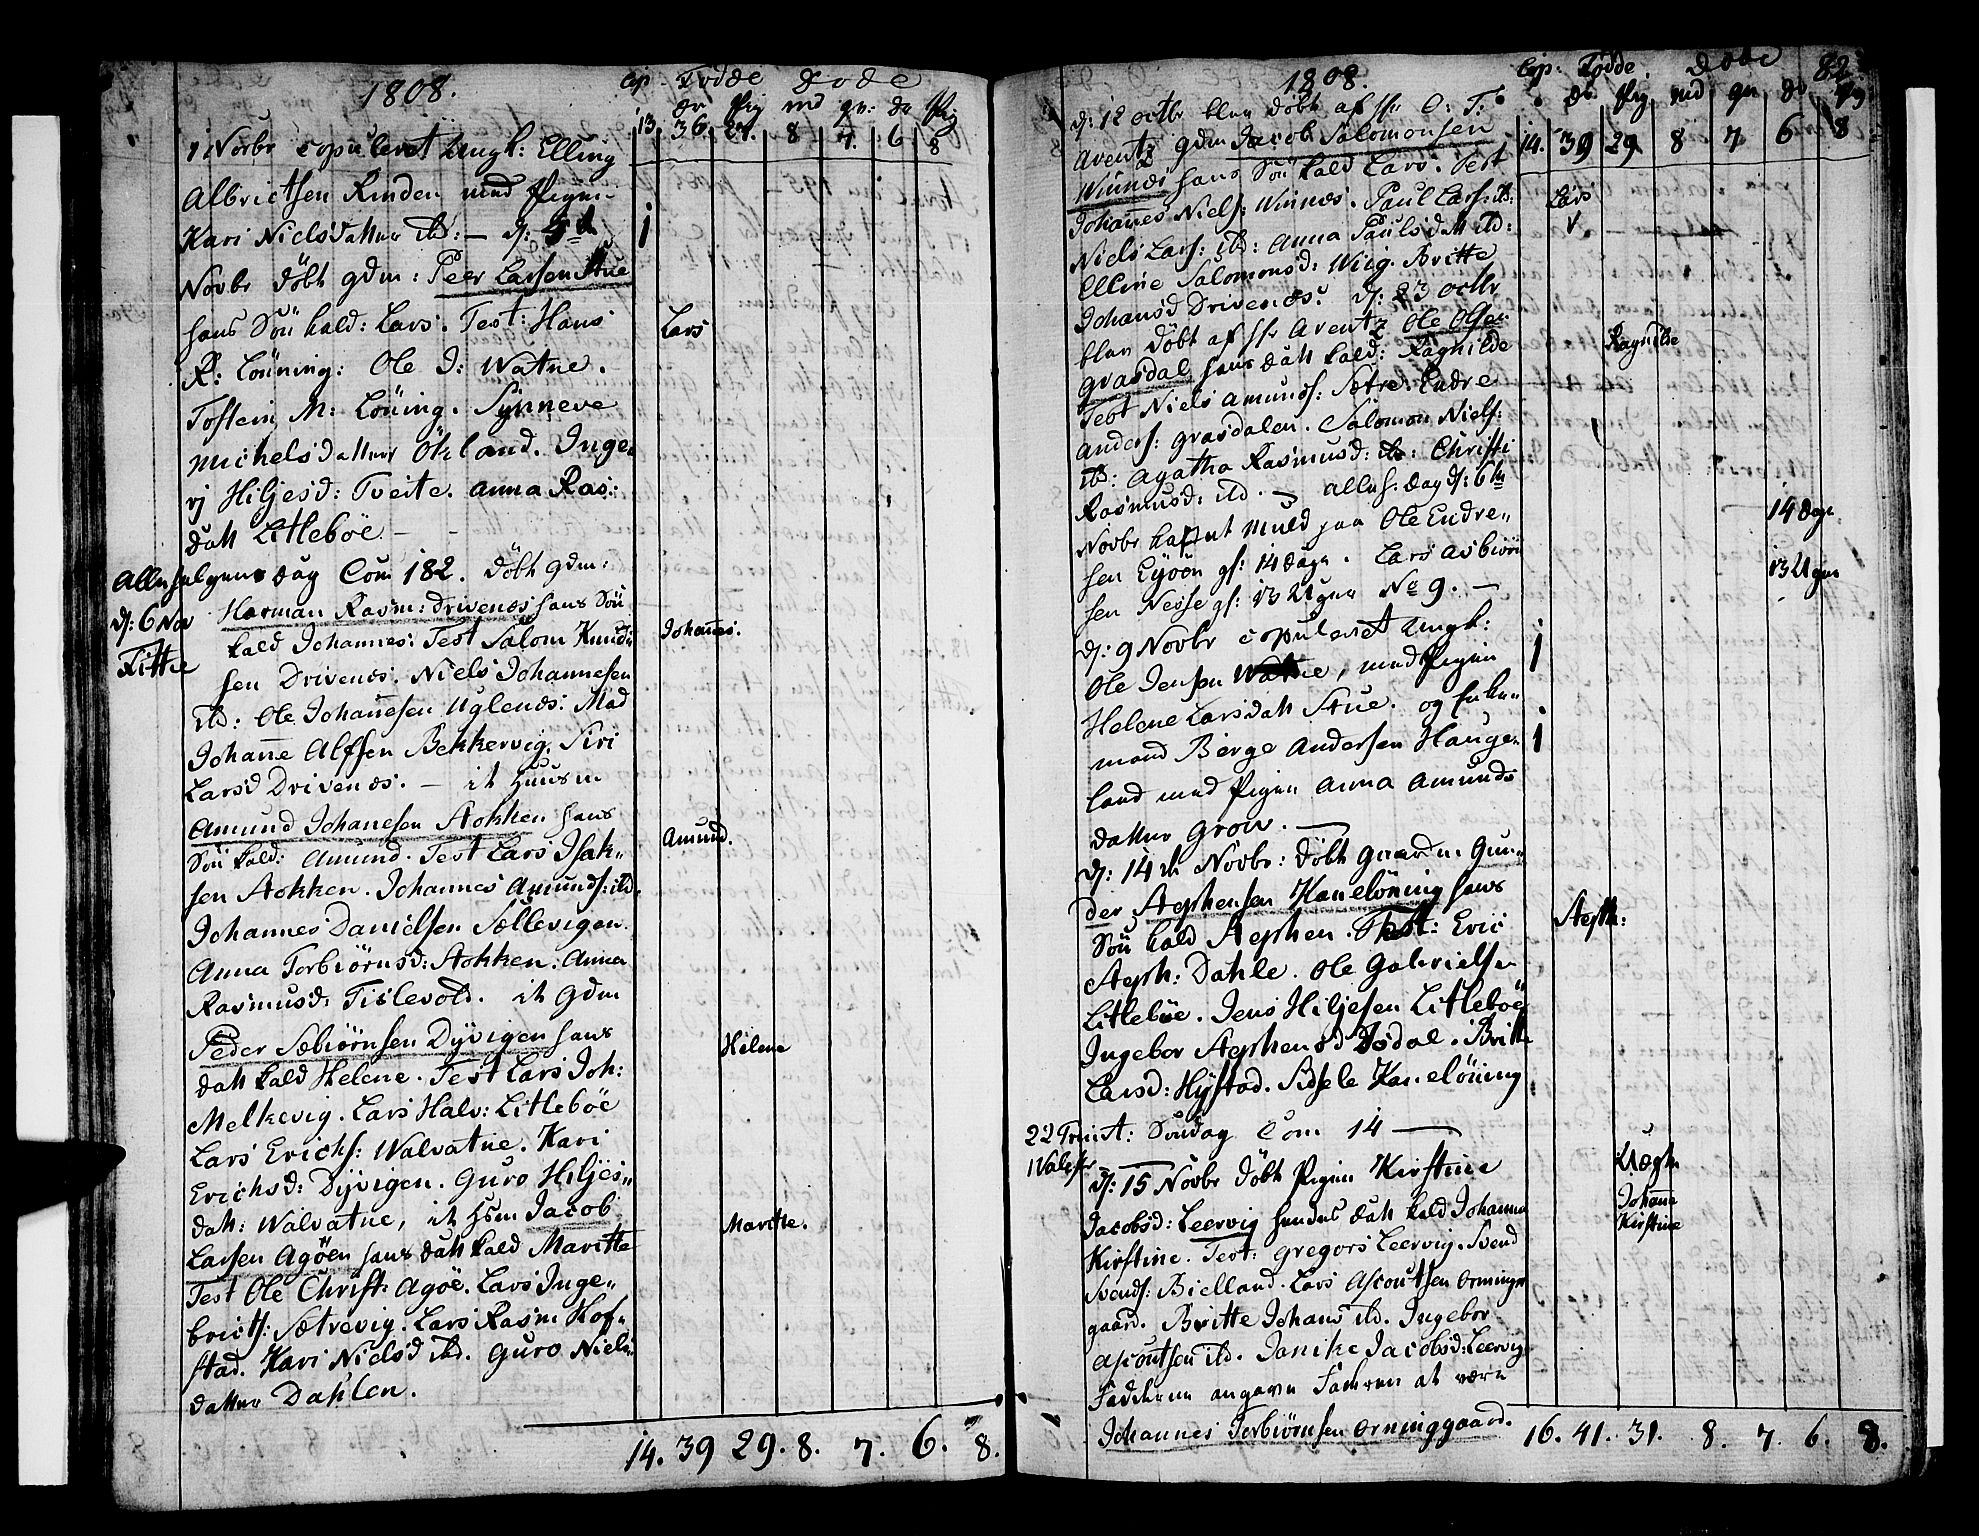 1808.
Cop. Födde Döde
dr Pig md qv: dr Pig
13. 36. 27. 8 7. 6. 8
1 Novbr copuleret Ungk: Elling
Albrictsen Rinden med Pigen
Kari Nielsdatter ibd: — d: 5te
Novbr döbt gdm: Peer Larsen Stue
hans Sön kald: Lars. Test: Hans
Lars
R: Löuning: Ole J: Watne.
Tostein M: Löning. Synneve
Michelsdatter Ökland. Inge
Hiljesd: Tveite. Anna Ras:
datt Litleböe —
Allehelgens dag Com 182. Döbt gdm:
d: 6 Nov Harman Rasm: Drivenes hans Sön
Fittie kald Johannes: Test Salom Knud:
Johannes.
sen Drivenes. Niels Johannesen
ibd: Ole Johannesen Uglenes: Mad
Johanne Alfsen Bekkervig. Siri
Larsd Drivenes. — it Huusm
Amund Johannesen Stokken hans
Sön kald: Amund. Test Lars Isak„
Amund.
sen Stokken. Johannes Amunds: ibd.
Johannes Danielsen Sællevigen.
Anna Torbiörnsd: Stokken. Anna
Rasmusd: Tislevold. it Gdm
Peder Sæbiörnsen Dÿvigen hans
Helene
datt kald Helene. Test Lars Joh:
Melkevig. Lars Halv: Litleböe
Lars Erichs: Walvatne. Kari
Erichsd: Dÿvigen. Guro Hiljes„
datt: Walvatne, it Hsm Jacob
Marithe.
Larsen Agöen hans datt kald Maritte
Test Ole Christ: Agöe. Lars Inge„
bricts: Sætrevig. Lars Rasm Hof„
stad. Kari Nielsd ibd. Guro Niels
datter Dahlen.
14. 39 29. 8. 7. 6. 8.
1808.
Cop. Födde Döde 82
dr. Pig md qv dr
d: 12 octbr blev döbt af Hr O: T:
14. 39 29 8 7 6 8
Arentz gdm Jacob Salomonsen
Winnes hans Sön kald Lars. Test
Lars
Johannes Niels: Winnes. Paul Lars: ibd:
Niels Lars: ibd: Anna Paulsdatt ibd:
Elline Salomonsd: Wiig. Britte
Johansd Drivenes: d: 23 octbr
blev döbt af Hr Arentz Ole Olsen
Ragnilde
Grasdal hans datt kald: Ragnilde
Test Niels Amunds: Sætre. Endre
Anders: Grasdalen. Salomon Niels:
ibd: Agatha Rasmusd: ibd: Christi
Rasmusd: ibd. — Alleh: dag d: 6te
14 dage
Novbr kastet Muld paa Ole Endre„
sen Eÿöen gl: 14 dage. Lars Asbiörn
13 Uger
sen Nesse gl: 13 Uger No 9. —
d: 9 Novbr copuleret Ungk:
Ole Jensen Watne, med Pigen
Helene Larsdatt Stue. og Enke„
mand Berge Andersen Hauge„
land med Pigen Anna Amunds
datter Grov. —
d: 14de Novbr: döbt Gaardm. Gun„
der Stephensen Kaneloning hans
Steph:
Sön kald Stephen. Test: Eric
Steph: Dahle. Ole Gabrielsen
Litleböe. Jens Hiljesen Litleböe
Ingebor Stephensd Dosdal. Britte
Larsd: Hÿstad. Sisele Kanelöning
22 Trinit: Söndag Com 14 —
d: 15 Novbr döbt Pigen Kirstine
Uægte
Johanne
Kirstine
Jacobsd: Leervig hendes datt kald Johanne
Kirstine. Test: Gregors Leervig. Svend
Svends: Bielland. Lars Ascoutsen Orninge
gaard. Britte Johans ibd. Ingebor
Ascoutsen ibd. Janike Jacobsd: Leervig
Fadderne angave Faderen at være
Johannes Torbiörnsen Orninggaard.
16. 41. 31. 8. 7. 6. 8.